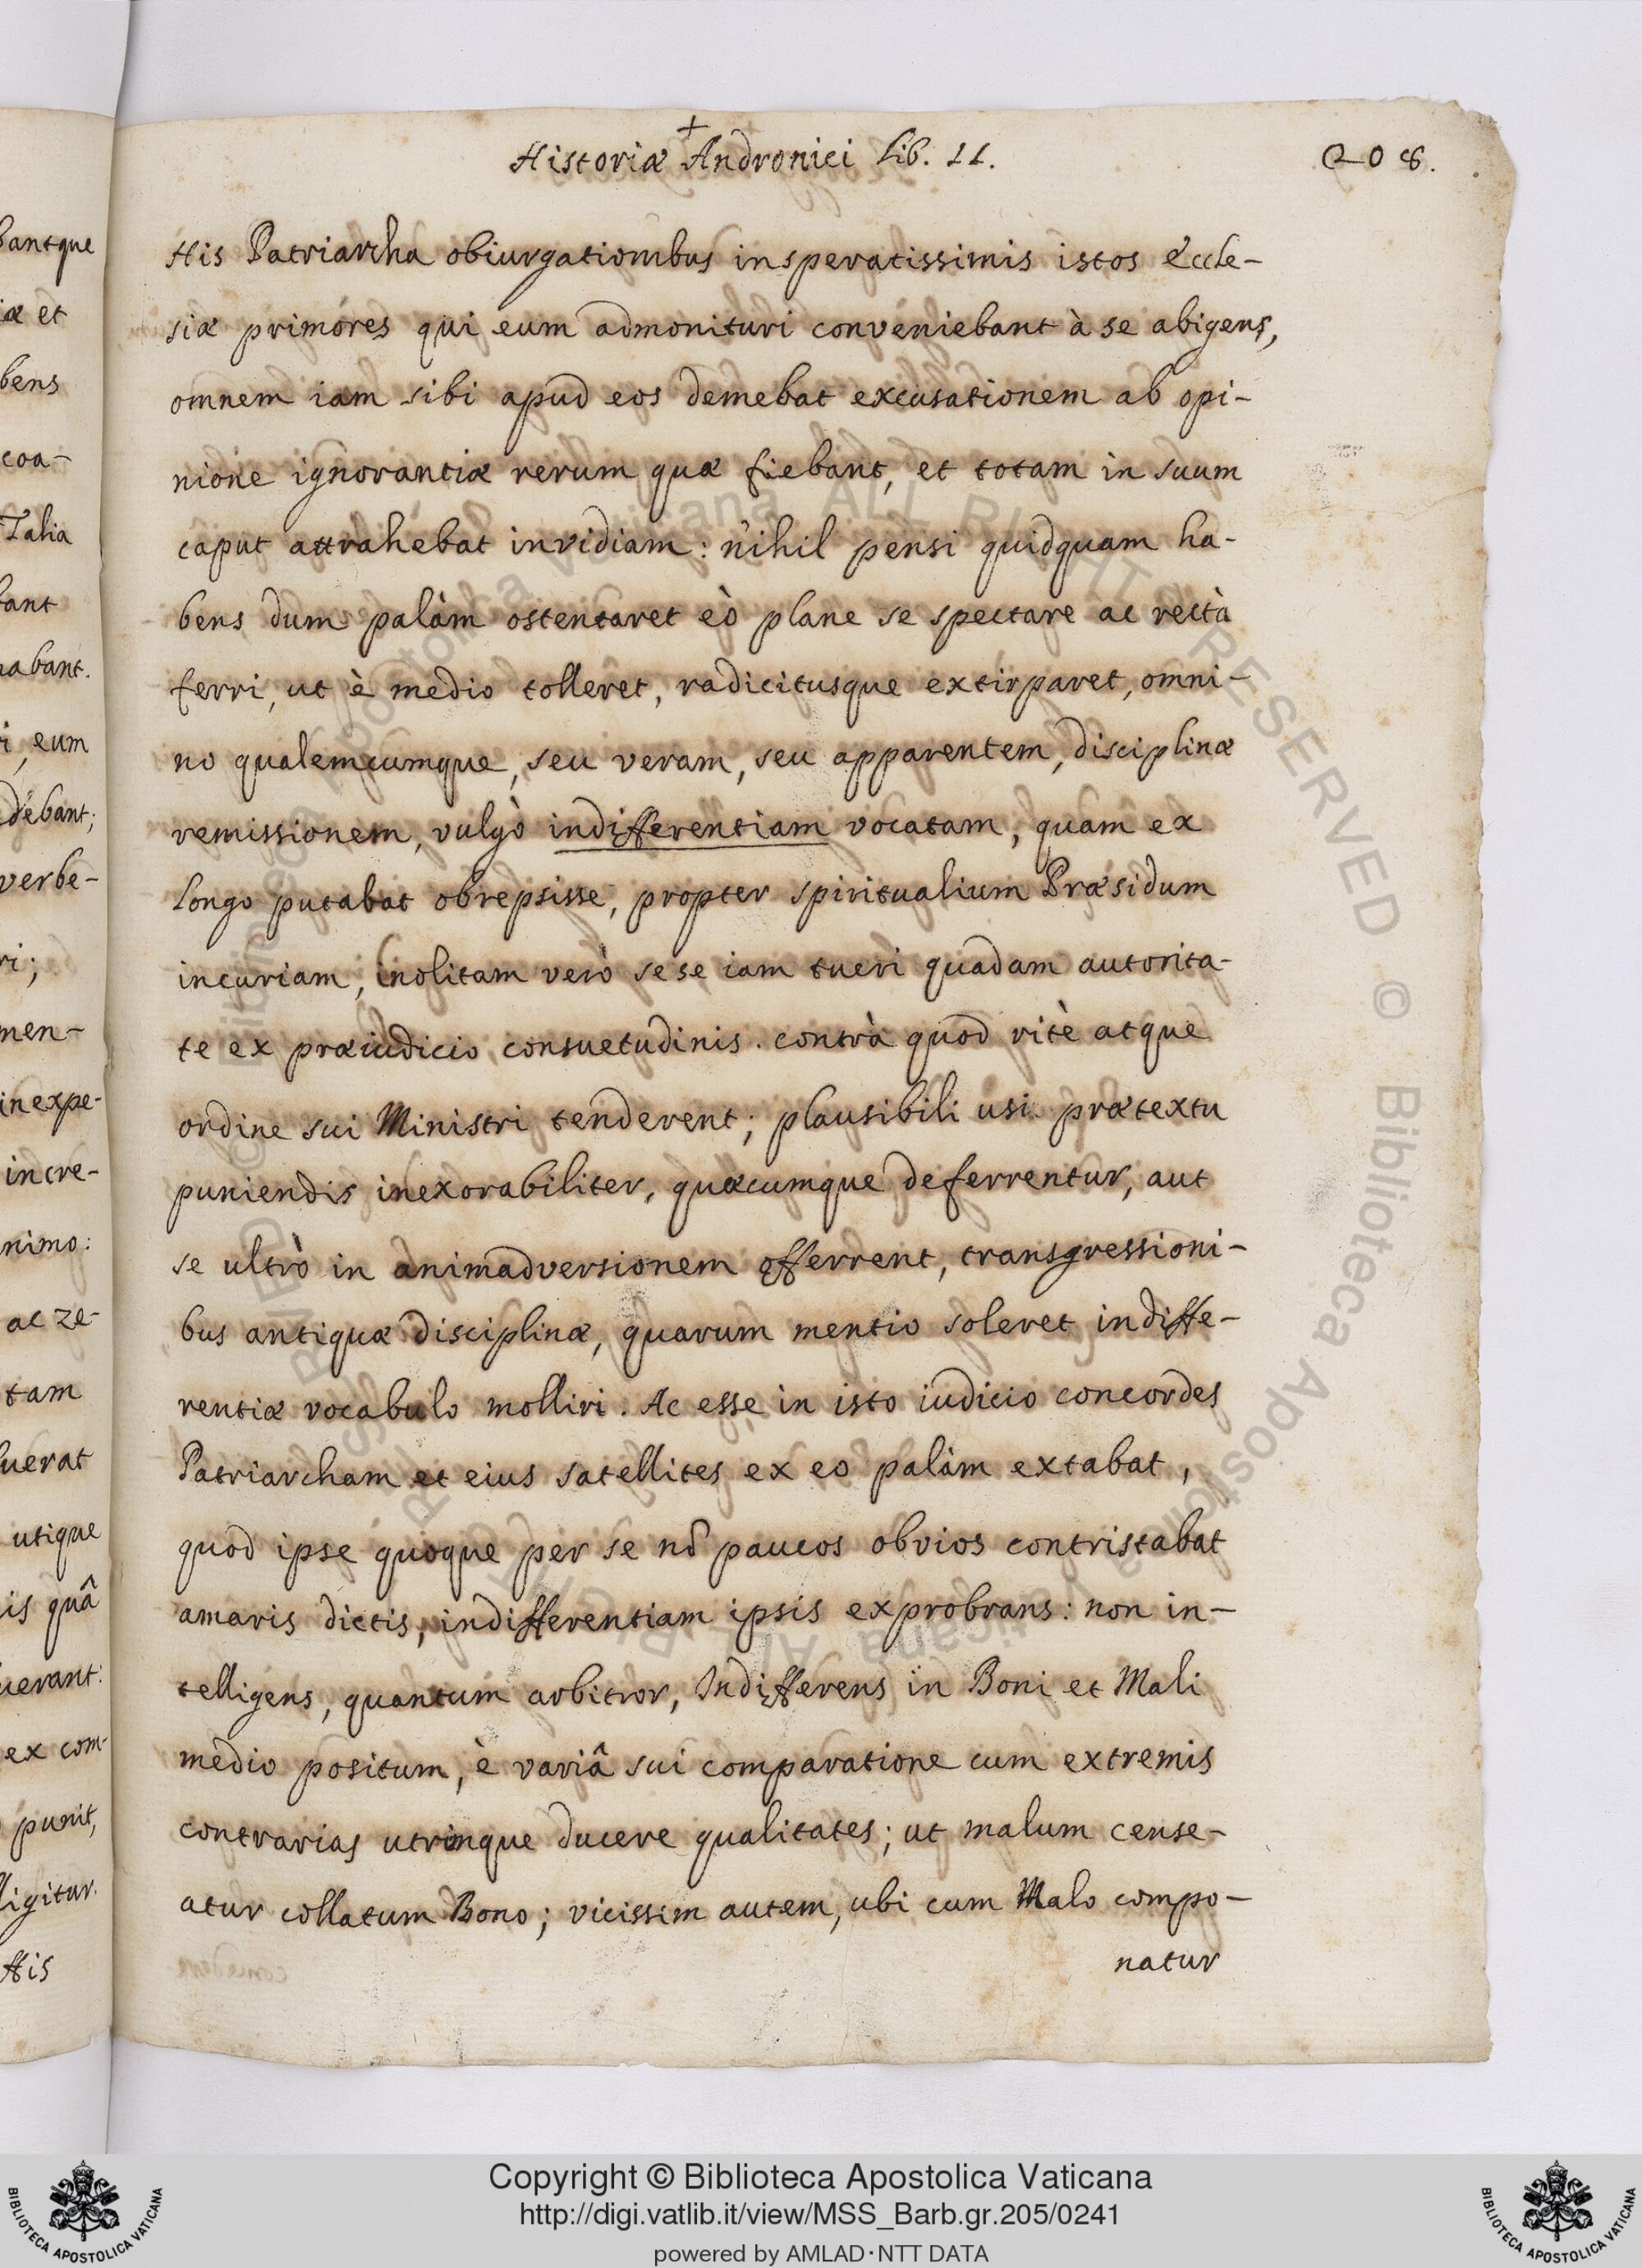 +
Historiæ Andronici Lib. II.
208.
His Patriarcha obiurgationibus insperatissimis istos Eccle-
siæ primores qui eum admonituri conveniebant à se abigens,
omnem iam sibi apud eos demebat excusationem ab opi-
nione ignorantiæ rerum quæ fiebant, et totam in suum
caput attrahebat invidiam: nihil pensi quidquam ha-
bens dum palàm ostentaret eò plane se spectare ac rectà
ferri, ut è medio tolleret, radicitusque extirparet, omni-
no qualemcumque, seu veram, seu apparentem, disciplinæ
remissionem, vulgò indifferentiam vocatam, quam ex
longo putabat obrepsisse, propter spiritualium Præsidum
incuriam, inolitam verò sese iam tueri quadam autorita-
te ex præiudicio consuetudinis. contrà quod ritè atque
ordine sui Ministri tenderent; plausibili usi prætextu
puniendis inexorabiliter, quæcumque deferrentur, aut
se ultrò in animadversionem offerrent, transgressioni-
bus antiquæ disciplinæ, quarum mentio soleret indiffe-
rentiæ vocabulo molliri. Ac esse in isto iudicio concordes
Patriarcham et eius satellites ex eo palàm extabat,
quod ipse quoque per se nō paucos obvios contristabat
amaris dictis, indifferentiam ipsis exprobrans: non in-
telligens, quantum arbitror, Indifferens in Boni et Mali
medio positum, è variâ sui comparatione cum extremis
contrarias utrinque ducere qualitates; ut malum cense-
atur collatum Bono; vicissim autem, ubi cum Malo compo-
natur
bantque
æ et
bens
coa-
Talia
bant
abant.
i, eum
debant;
verbe-
ri;
men-
inexpe-
incre-
nimo:
ac ze-
tam
uerat
utique
is quâ
erant:
ex com-
punit,
ligitur.
His
© Biblioteca Apostolica Vaticana ALL RIGHTS RESERVED
Copyright © Biblioteca Apostolica Vaticana
http://digi.vatlib.it/view/MSS_Barb.gr.205/0241
powered by AMLAD·NTT DATA
BIBLIOTECA APOSTOLICA VATICANA
BIBLIOTECA APOSTOLICA VATICANA